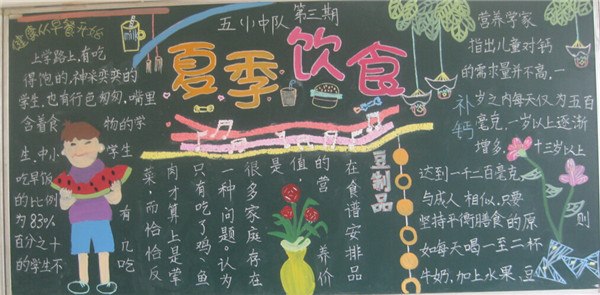 五小中队 第三期
夏季饮食
健康从早餐开始
上学路上,有吃
得饱的,神采奕奕的
学生,也有行色匆匆,嘴里
含着食物的学
生,中小学生
吃早饭
的比例
为83% 有
百分之十几
的学生不吃
豆制品
在食谱安排品
的营养价
值
是
很多家庭存在
一种问题:认为
只有吃了鸡、鱼
肉才算上是荤
菜,而恰恰反
补钙
营养学家
指出儿童对钙
的需求量并不高,一
岁之内每天仅为五百
毫克,一岁以上逐渐
增多,十三岁以上
达到一千二百毫克
与成人相似,只要
坚持平衡膳食的原则
如每天喝一至二杯
牛奶,加上水果、豆